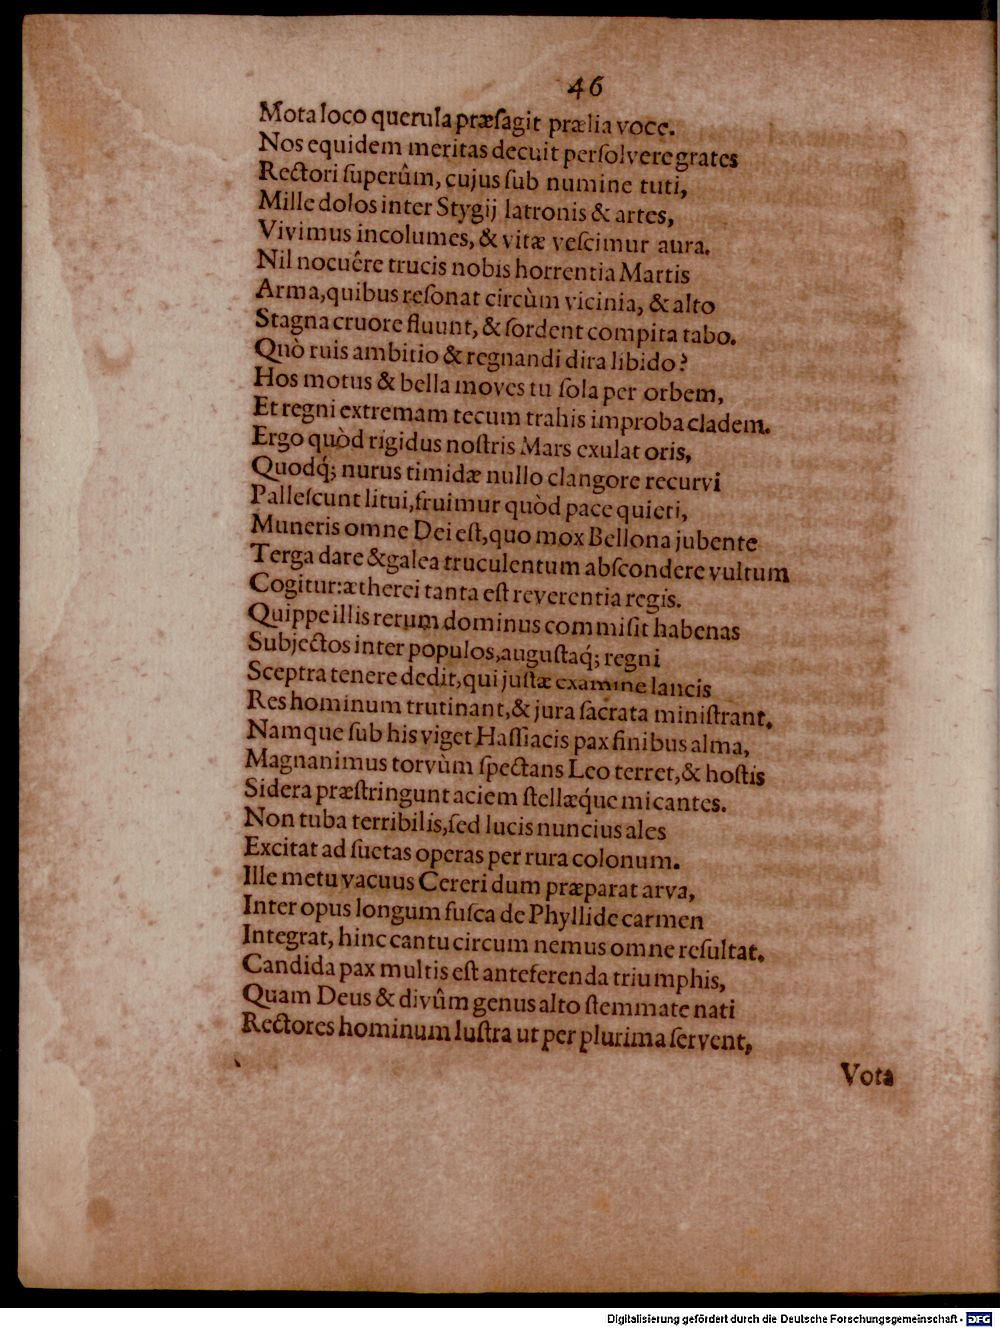 46
Mota loco querula præſagit prælia voce.
Nos equidem meritas decuit perſolvere grates
Rectori ſuperûm, cujus ſub numine tuti,
Mille dolos inter Stygij latronis & artes,
Vivimus incolumes, & vitæ veſcimur aura.
Nil nocuêre trucis nobis horrentia Martis
Arma, quibus reſonat circùm vicinia, & alto
Stagna cruore fluunt, & ſordent compita tabo.
Quò ruis ambitio & regnandi dira libido?
Hos motus & bella moves tu ſola per orbem,
Et regni extremam tecum trahis improba cladem.
Ergo quòd rigidus noſtris Mars exulat oris,
Quodq́; nurus timidæ nullo clangore recurvi
Palleſcunt litui, fruimur quòd pace quieti,
Muneris omne Dei eſt, quo mox Bellona jubente
Terga dare & galea truculentum abſcondere vultum
Cogitur: ætherei tanta eſt reverentia regis.
Quippe illis rerum dominus commiſit habenas
Subjectos inter populos, auguſtaq́; regni
Sceptra tenere dedit, qui juſtæ examine lancis
Res hominum trutinant, & jura ſacrata miniſtrant.
Namque ſub his viget Haſſiacis pax finibus alma,
Magnanimus torvùm ſpectans Leo terret, & hoſtis
Sidera præſtringunt aciem ſtellæq́ue micantes.
Non tuba terribilis, ſed lucis nuncius ales
Excitat ad ſuetas operas per rura colonum.
Ille metu vacuus Cereri dum præparat arva,
Inter opus longum fuſca de Phyllide carmen
Integrat, hinc cantu circum nemus omne reſultat.
Candida pax multis eſt anteferenda triumphis,
Quam Deus & divûm genus alto ſtemmate nati
Rectores hominum luſtra ut per plurima ſervent,
Vota
Digitalisierung gefördert durch die Deutsche Forschungsgemeinschaft - DFG